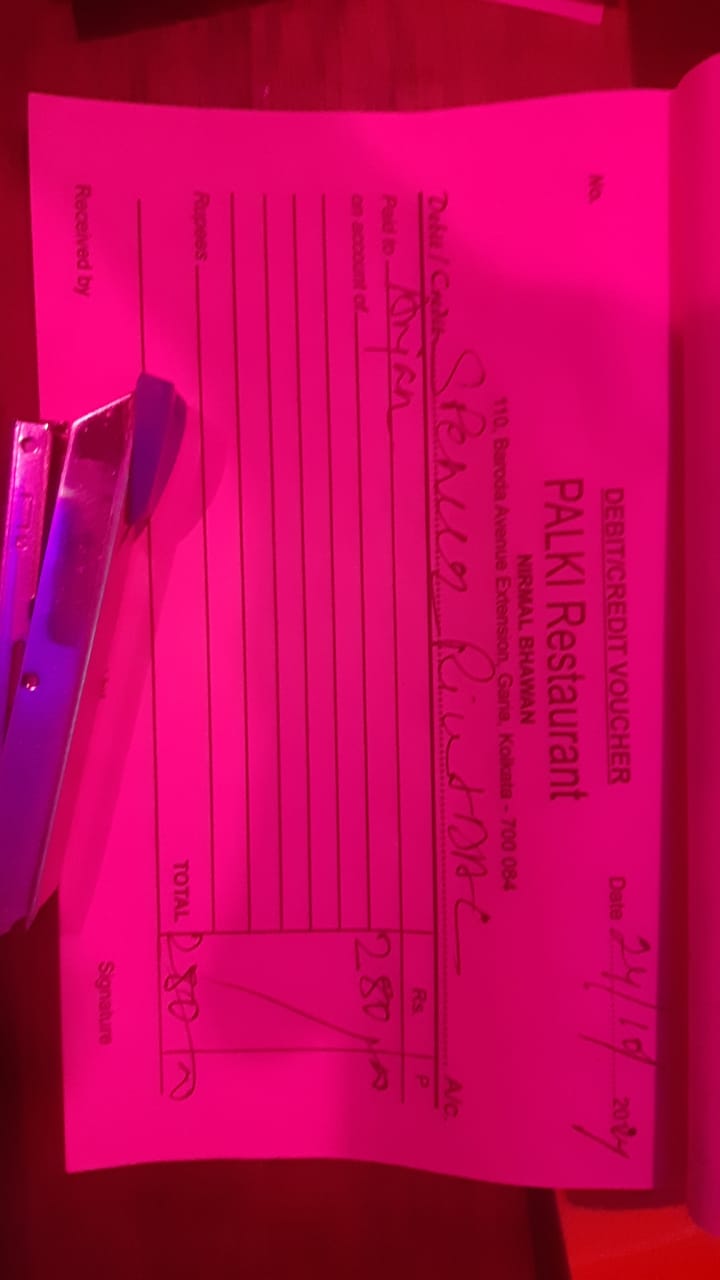 DEBIT/CREDIT VOUCHER
No.
Date 24/10 2024
PALKI Restaurant
NIRMAL BHAWAN
110, Baroda Avenue Extension, Garia, Kolkata - 700 084
Debit / Credit A/c.
Paid to Anjan Rs. P
on account of 280
Rupees TOTAL 280
Received by Signature